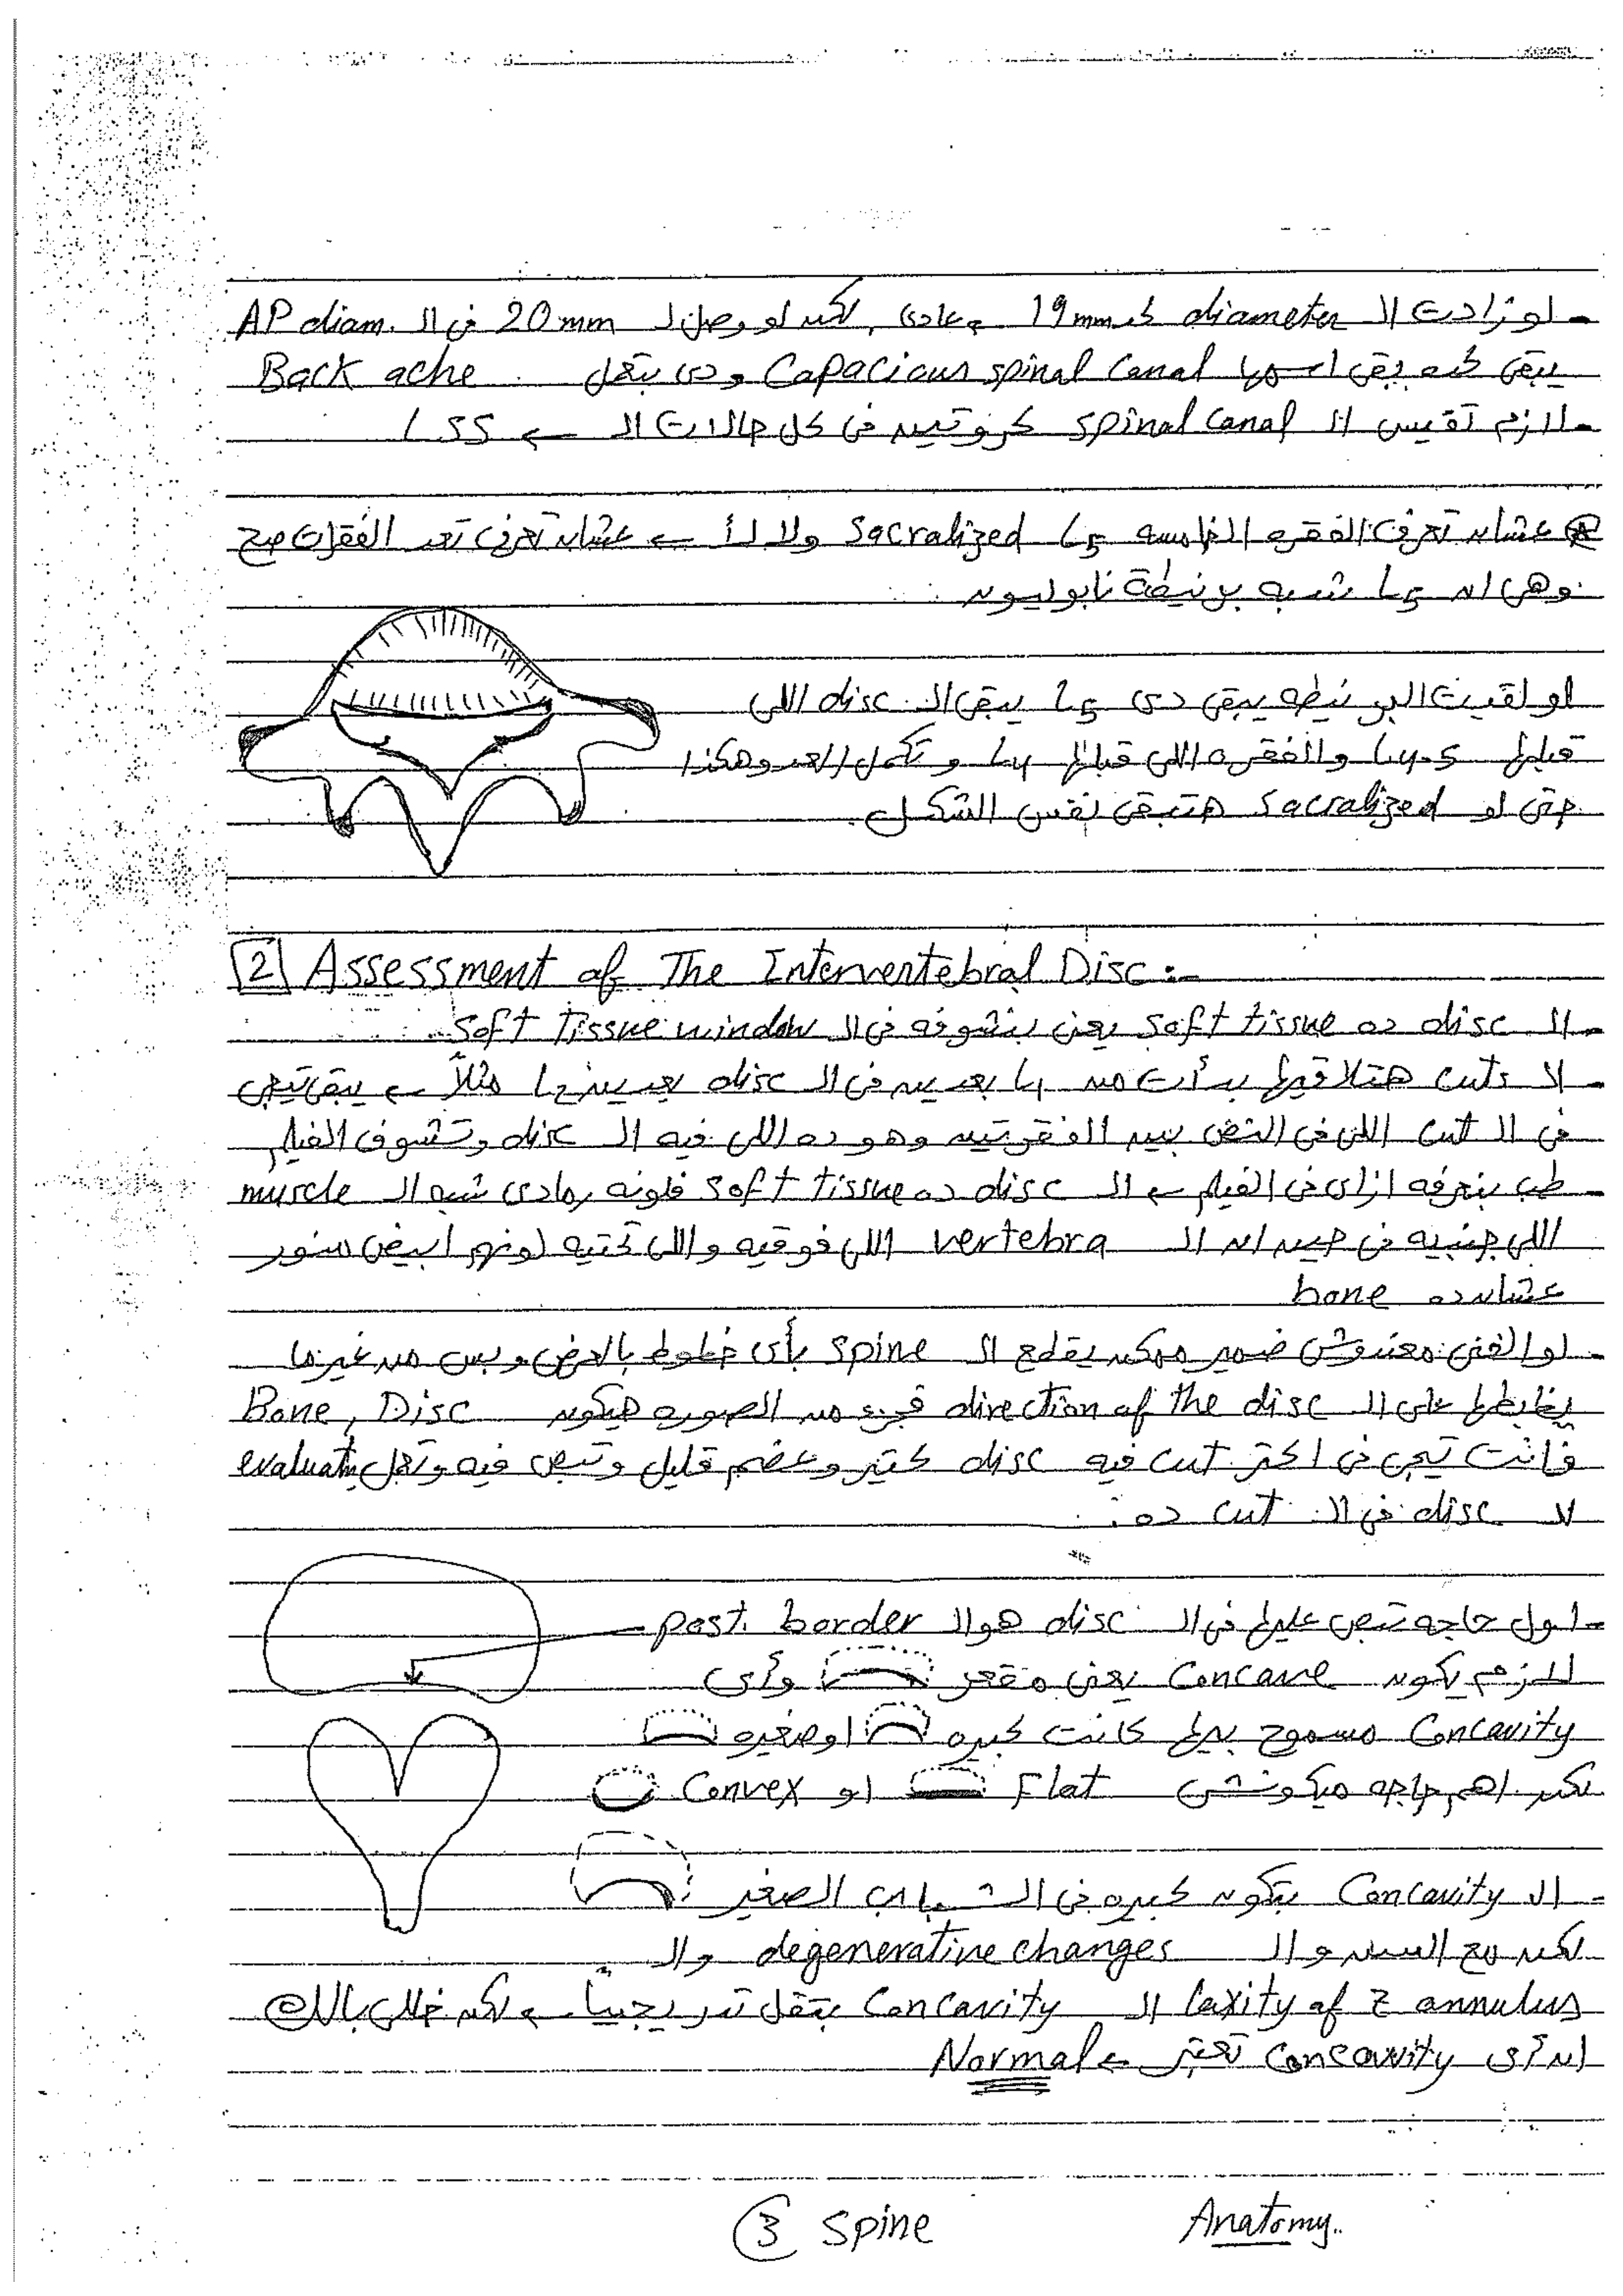 - لو زادت الـ diameter لـ 19mm → عادى , لكن لو وصل لـ 20mm فى الـ AP diam.
يبقى كده بقى اسمها Capacious spinal canal ودى بتعمل Back ache
- لازم تقيس الـ spinal canal كروتين فى كل حالات الـ ← LSS
عشان تعرف الفقره الخامسه L5 Sacralized ولا لأ ← عشان تعرف تعد الفقرات صح
وهى ان L5 شبه برنيطة نابوليون
لو لقيت البرنيطه يبقى دى L5 يبقى الـ disc اللى
قبلها L4-5 والفقره اللى قبلها L4 وتكمل العد وهكذا
حتى لو Sacralized هتبقى نفس الشكل.
[2] Assessment of The Intervertebral Disc :-
- الـ disc ده soft tissue يعنى بنشوفه فى الـ soft tissue window
- الـ cuts هتلاقيها بدأت من L4 بعدين فى الـ disc بعدين L5 مثلاً ← يبقى تيجى
فى الـ cut اللى فى النص بين الفقرتين وهو ده اللى فيه الـ disc وتشوف الفيلم
- طب بنعرفه ازاى فى الفيلم ← الـ disc ده soft tissue فلونه رمادى شبه الـ muscle
اللى جنبيه فى حين ان الـ vertebra اللى فوقيه واللى تحتيه لونهم ابيض منور
عشان ده bone
- لو الفنى معندوش ضمير ممكن يقطع الـ spine بأى خطوط بالعرض وبس من غير ما
يظبطها على الـ direction of the disc فجزء من الصوره هيكون Bone, Disc
فانت تيجى فى اكتر cut فيه disc كتير وعضم قليل وتبص فيه وتعمل evaluate
لا disc فى الـ cut ده.
- اول حاجه تبص عليها فى الـ disc هو الـ post. border
لازم يكون Concave يعنى مقعر وأى
Concavity مسموح بيها كانت كبيره او صغيره
لكن اهم حاجه ميكونش Flat او Convex
- الـ Concavity بتكون كبيره فى الشباب الصغير
لكن مع السن و الـ degenerative changes والـ
laxity of z annulus الـ Concavity بتقل تدريجياً → لكن خلى بالك
ان أى concavity تعتبر ← Normal
③ Spine Anatomy..